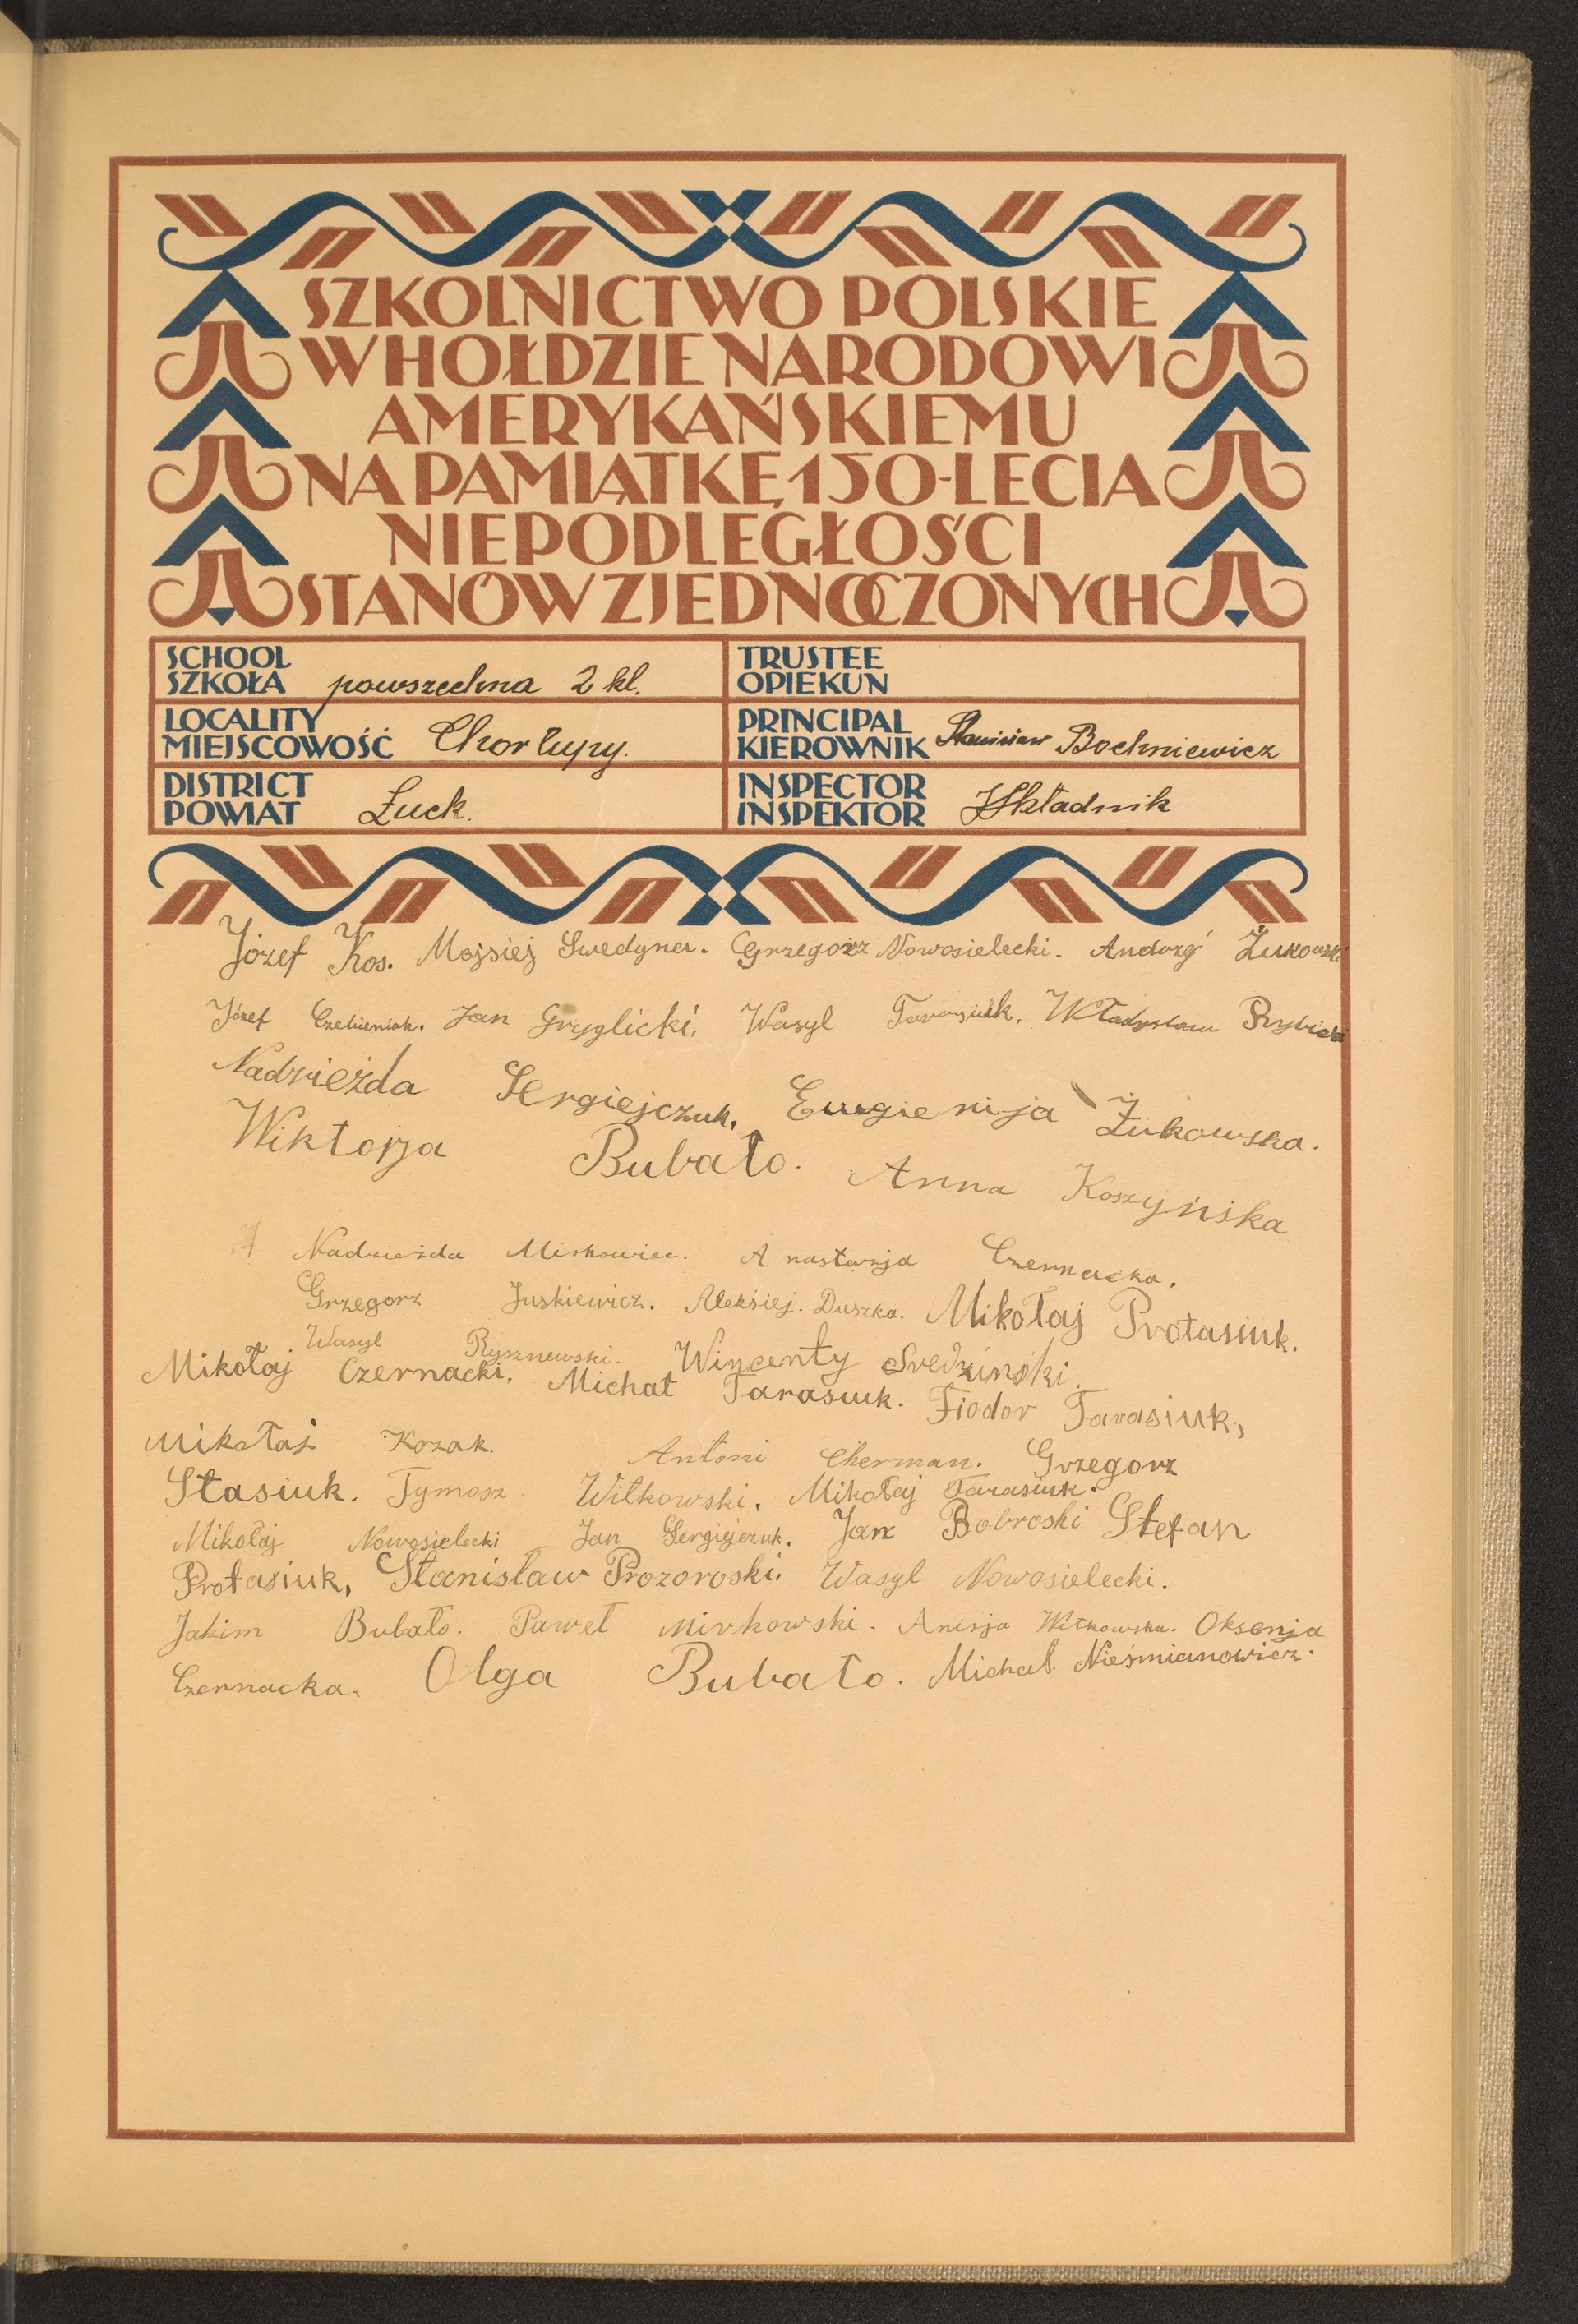 SZKOLNICTWO POLSKIE
W HOŁDZIE NARODOWI
AMERYKAŃSKIEMU
NA PAMIĄTKĘ 150-LECIA
NIEPODLEGŁOŚCI
STANÓW ZJEDNOCZONYCH
SCHOOL
SZKOŁA powszechna 2 kl.
TRUSTEE
OPIEKUN
LOCALITY
MIEJSCOWOŚĆ Chorłupy.
PRINCIPAL
KIEROWNIK Stanisław Bochniewicz
DISTRICT
POWIAT Łuck.
INSPECTOR
INSPEKTOR Składnik
Józef Kos. Mojsiej Swedyner. Grzegorz Nowosielecki. Andrzej Żukowski
Józef Jan Gryglicki. Wasyl Tarasiuk. Władysław Rybicki
Nadzieżda Sergiejczuk. Eugienija Żukowska.
Wiktorja Bubało. Anna Koszyńska
Nadzieżda Miskowiec. Anastazja Czernacka.
Grzegorz Juskiewicz. Aleksiej. Duszka. Mikołaj Protasiuk.
Wasyl Rysznewski. Wincenty Sredziński.
Mikołaj Czernacki. Michał Tarasiuk. Fiodor Tarasiuk,
Mikołaj Kozak. Antoni Cherman. Grzegorz
Stasiuk. Tymosz Witkowski. Mikołaj Tarasiuk.
Mikołaj Nowosielecki Jan Sergiejczuk. Jan Bobroski Stefan
Protasiuk, Stanisław Prozoroski. Wasyl Nowosielecki.
Jakim Bubało. Paweł Mirkowski. Anisja Witkowska. Oksenja
Czernacka. Olga Bubało. Michał Nieśmianowicz.